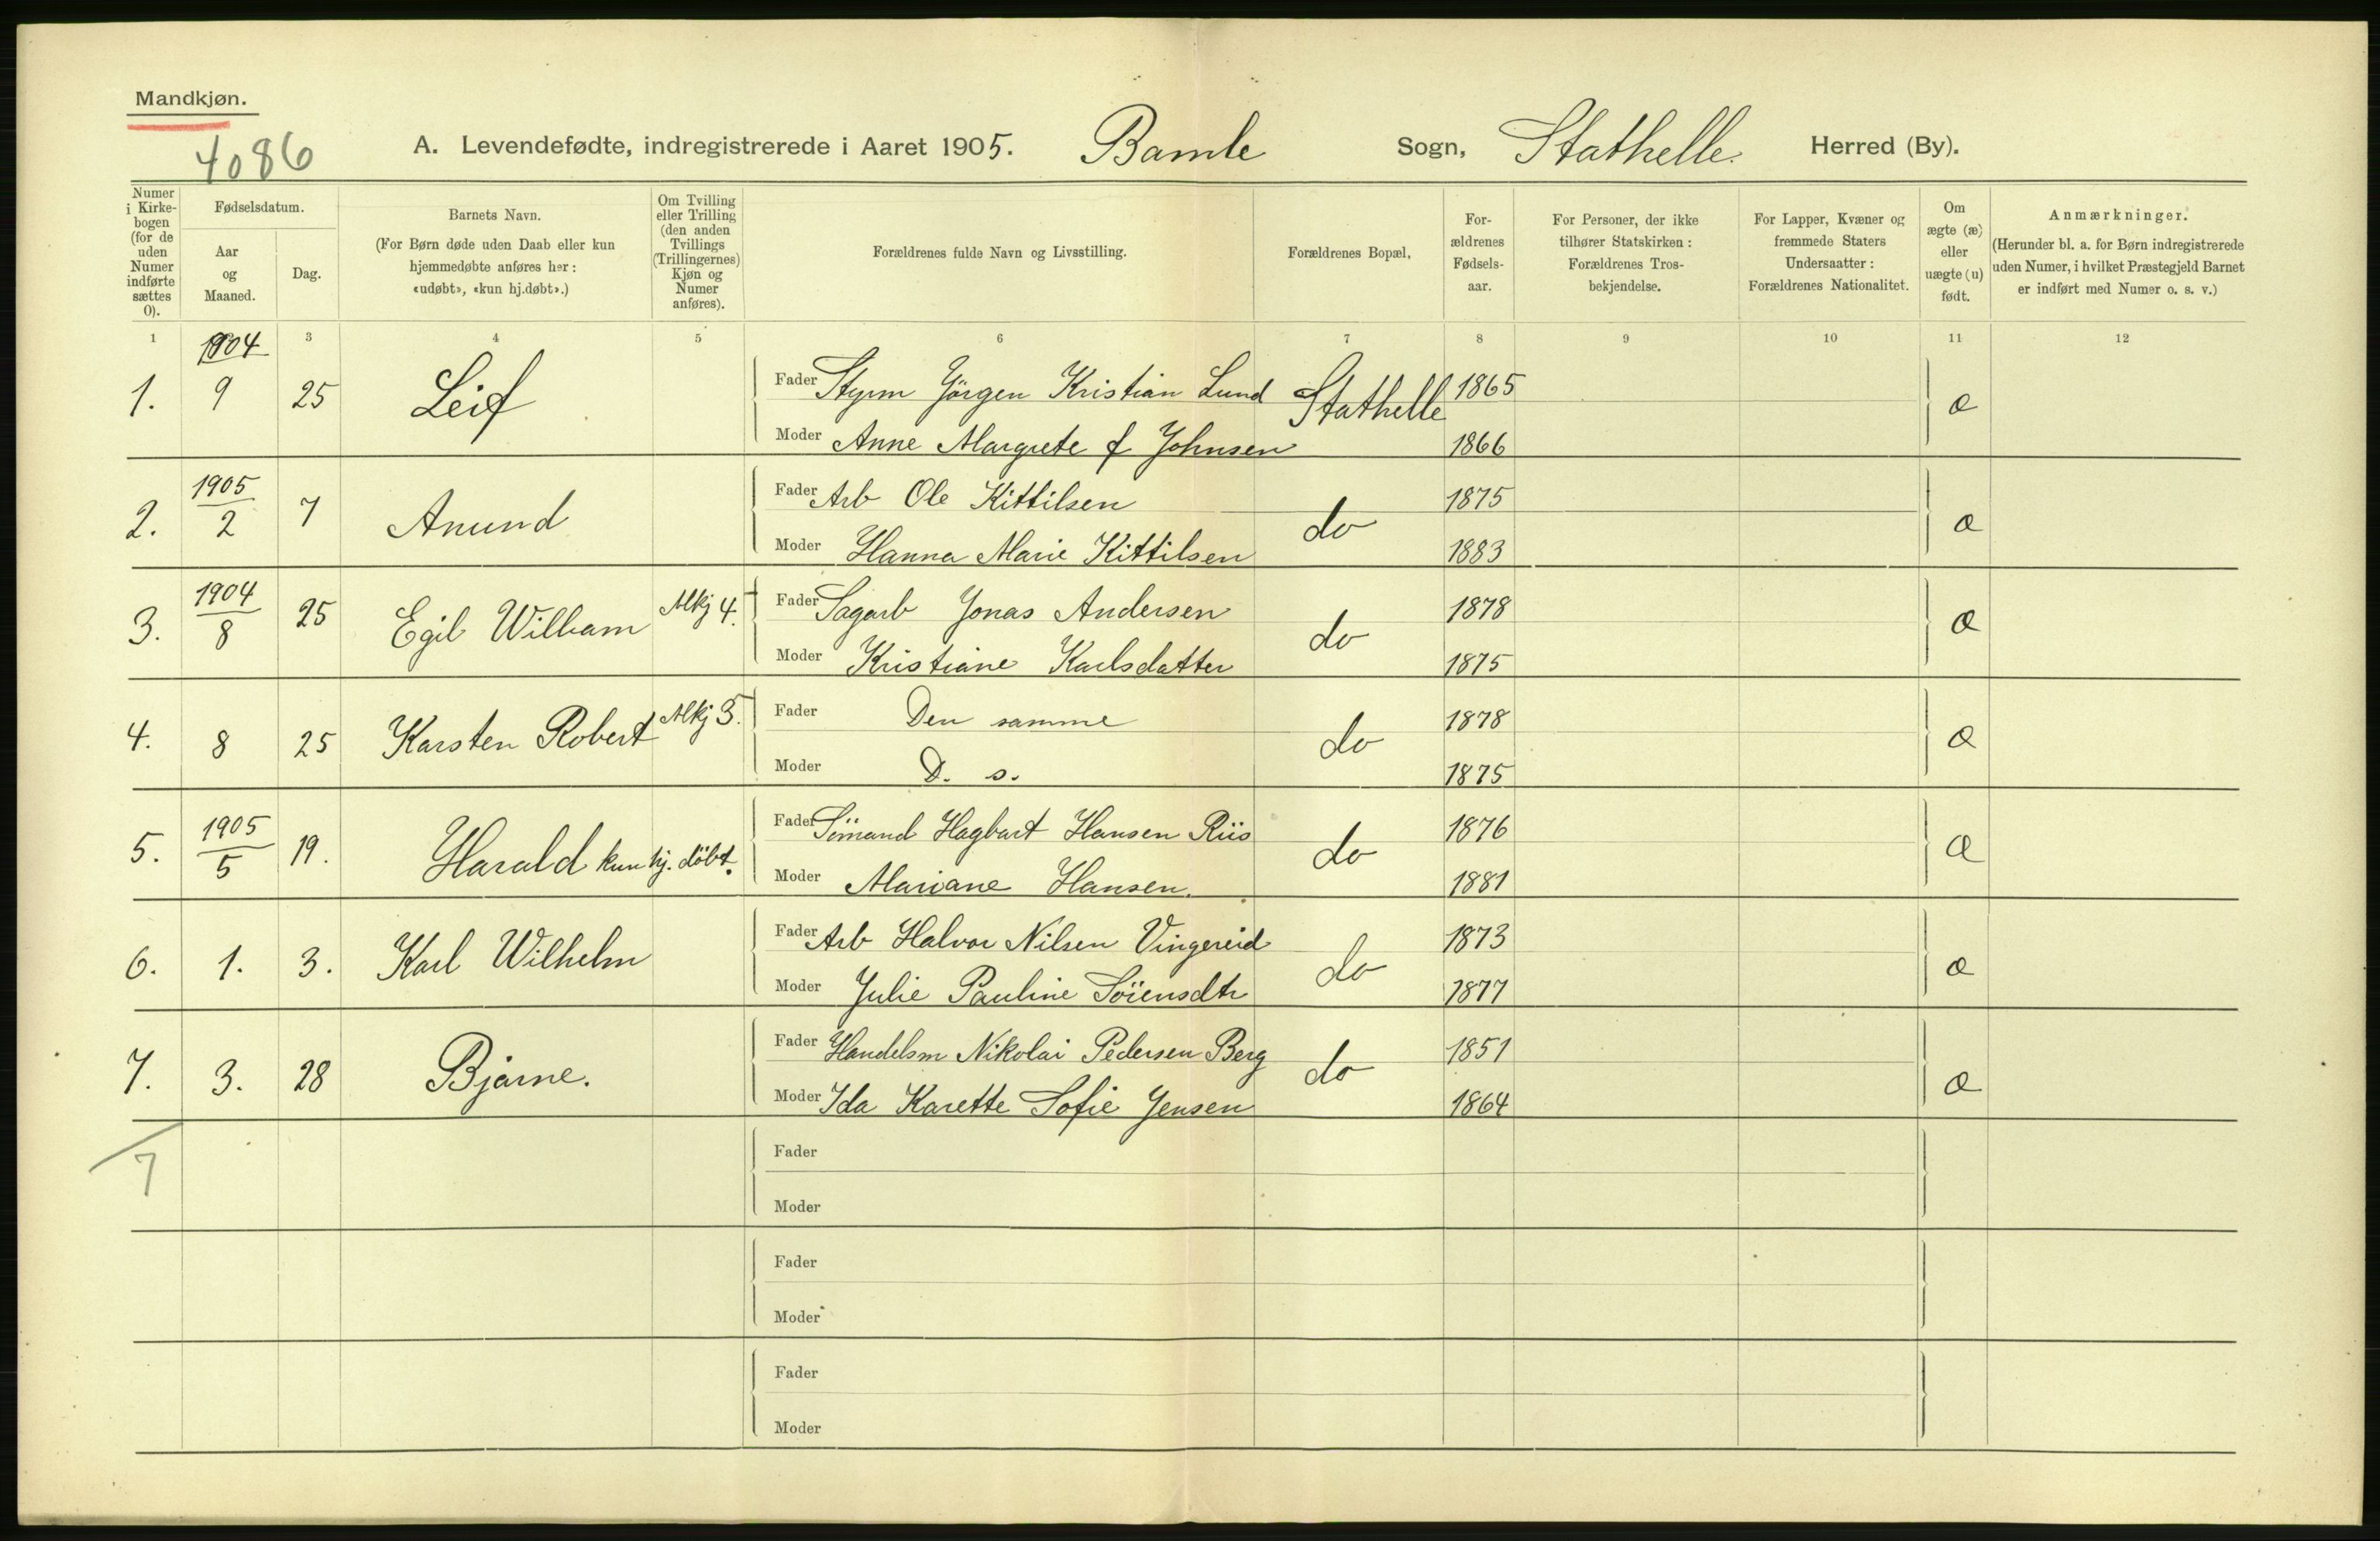 Mandkjøn.
4086
A. Levendefødte, indregistrerede i Aaret 1905. Bamle Sogn, Stathelle Herred (By).
Numer i Kirkebogen (for de uden Numer indførte sættes 0).
Fødselsdatum.
Aar og Maaned.
Dag.
Barnets Navn.
(For Børn døde uden Daab eller kun hjemmedøbte anføres her: «udøbt», «kun hj.døbt».)
Om Tvilling eller Trilling (den anden Tvillings (Trillingernes) Kjøn og Numer anføres).
Forældrenes fulde Navn og Livsstilling.
Forældrenes Bopæl,
Forældrenes Fødselsaar.
For Personer, der ikke tilhører Statskirken: Forældrenes Trosbekjendelse.
For Lapper, Kvæner og fremmede Staters Undersaatter: Forældrenes Nationalitet.
Om ægte (æ) eller uægte (u) født.
Anmærkninger.
(Herunder bl. a. for Børn indregistrerede uden Numer, i hvilket Præstegjeld Barnet er indført med Numer o. s. v.)
1 3 4 5 6 7 8 9 10 11 12
1904
1. 9 25 Leif Fader Styrm Jörgen Kristian Lund Stathelle 1865 æ
Moder Anne Margrete f Johnsen 1866
2. 1905 2 7 Anund Fader Arb Ole Kittilsen do 1875 æ
Moder Hanna Marie Kittilsen 1883
3. 1904 8 25 Egil William Mkj 4. Fader Sagarb Jonas Andersen do 1878 æ
Moder Kristiane Karlsdatter 1875
4. 8 25 Karsten Robert Mkj 3. Fader Den samme do 1878 æ
Moder D. s. 1875
5. 1905 5 19. Harald kun hj. döbt. Fader Sömand Hagbart Hansen Riis do 1876 æ
Moder Mariane Hansen. 1881
6. 1. 3. Karl Wilhelm Fader Arb Halvor Nilsen Vingereid do 1873 æ
Moder Julie Pauline Sörensdtr 1877
7. 3. 28 Bjarne. Fader Handelsm Nikolai Pedersen Berg do 1851 æ
Moder Ida Karette Sofie Jensen 1864
7
Fader
Moder
Fader
Moder
Fader
Moder